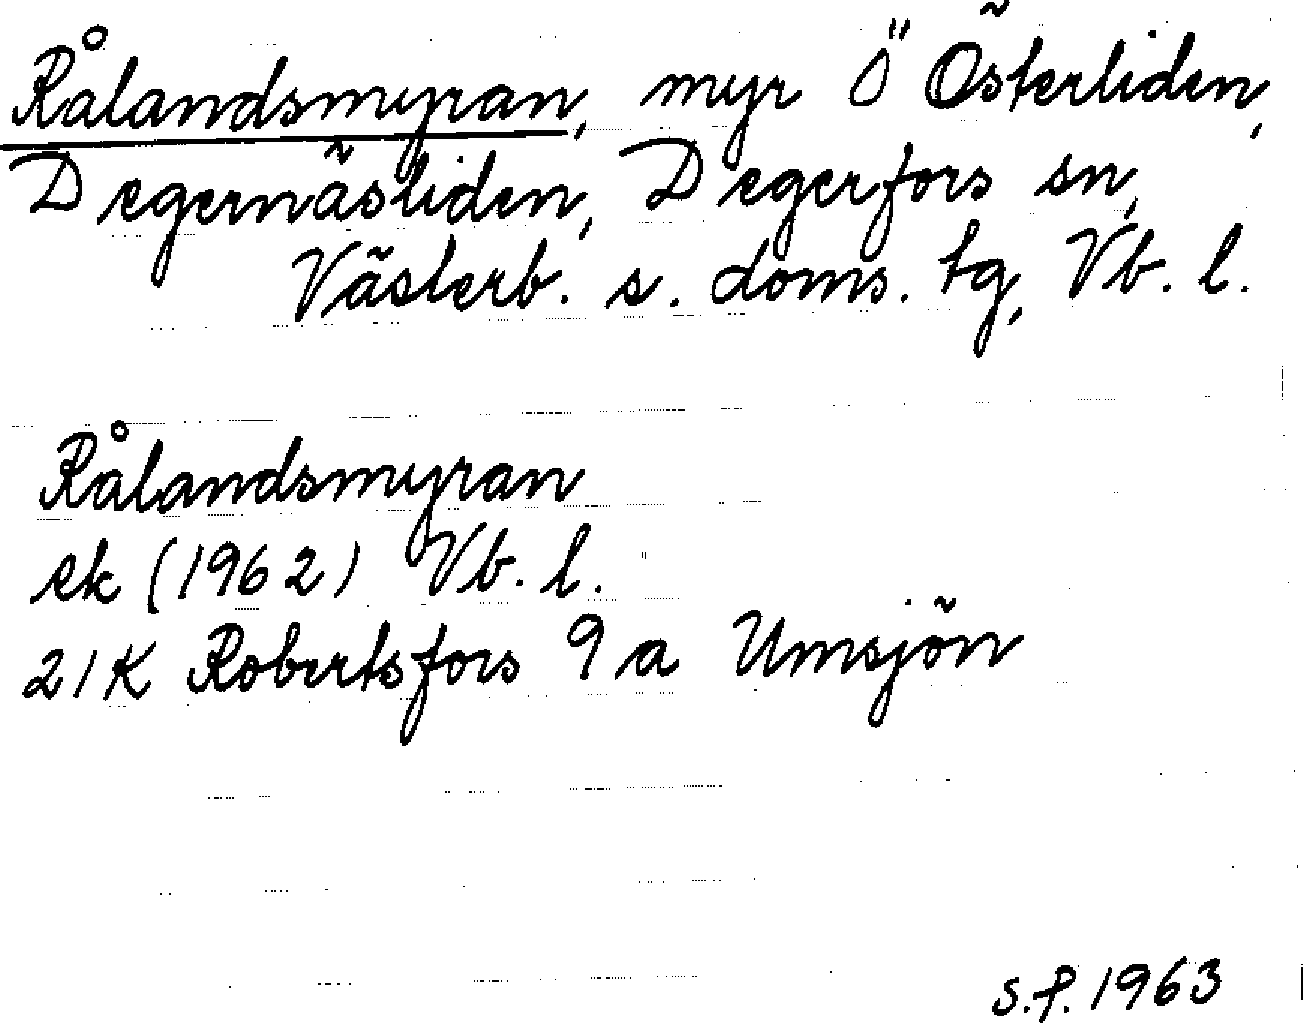 Rålandsmyran, myr Ö Österliden,
Degernäsliden, Degerfors sn,
Västerb. s. doms. tg, Vb. l.
Rålandsmyran
ek (1962) Vb. l.
21K Robertsfors 9a Umsjön
S.F. 1963